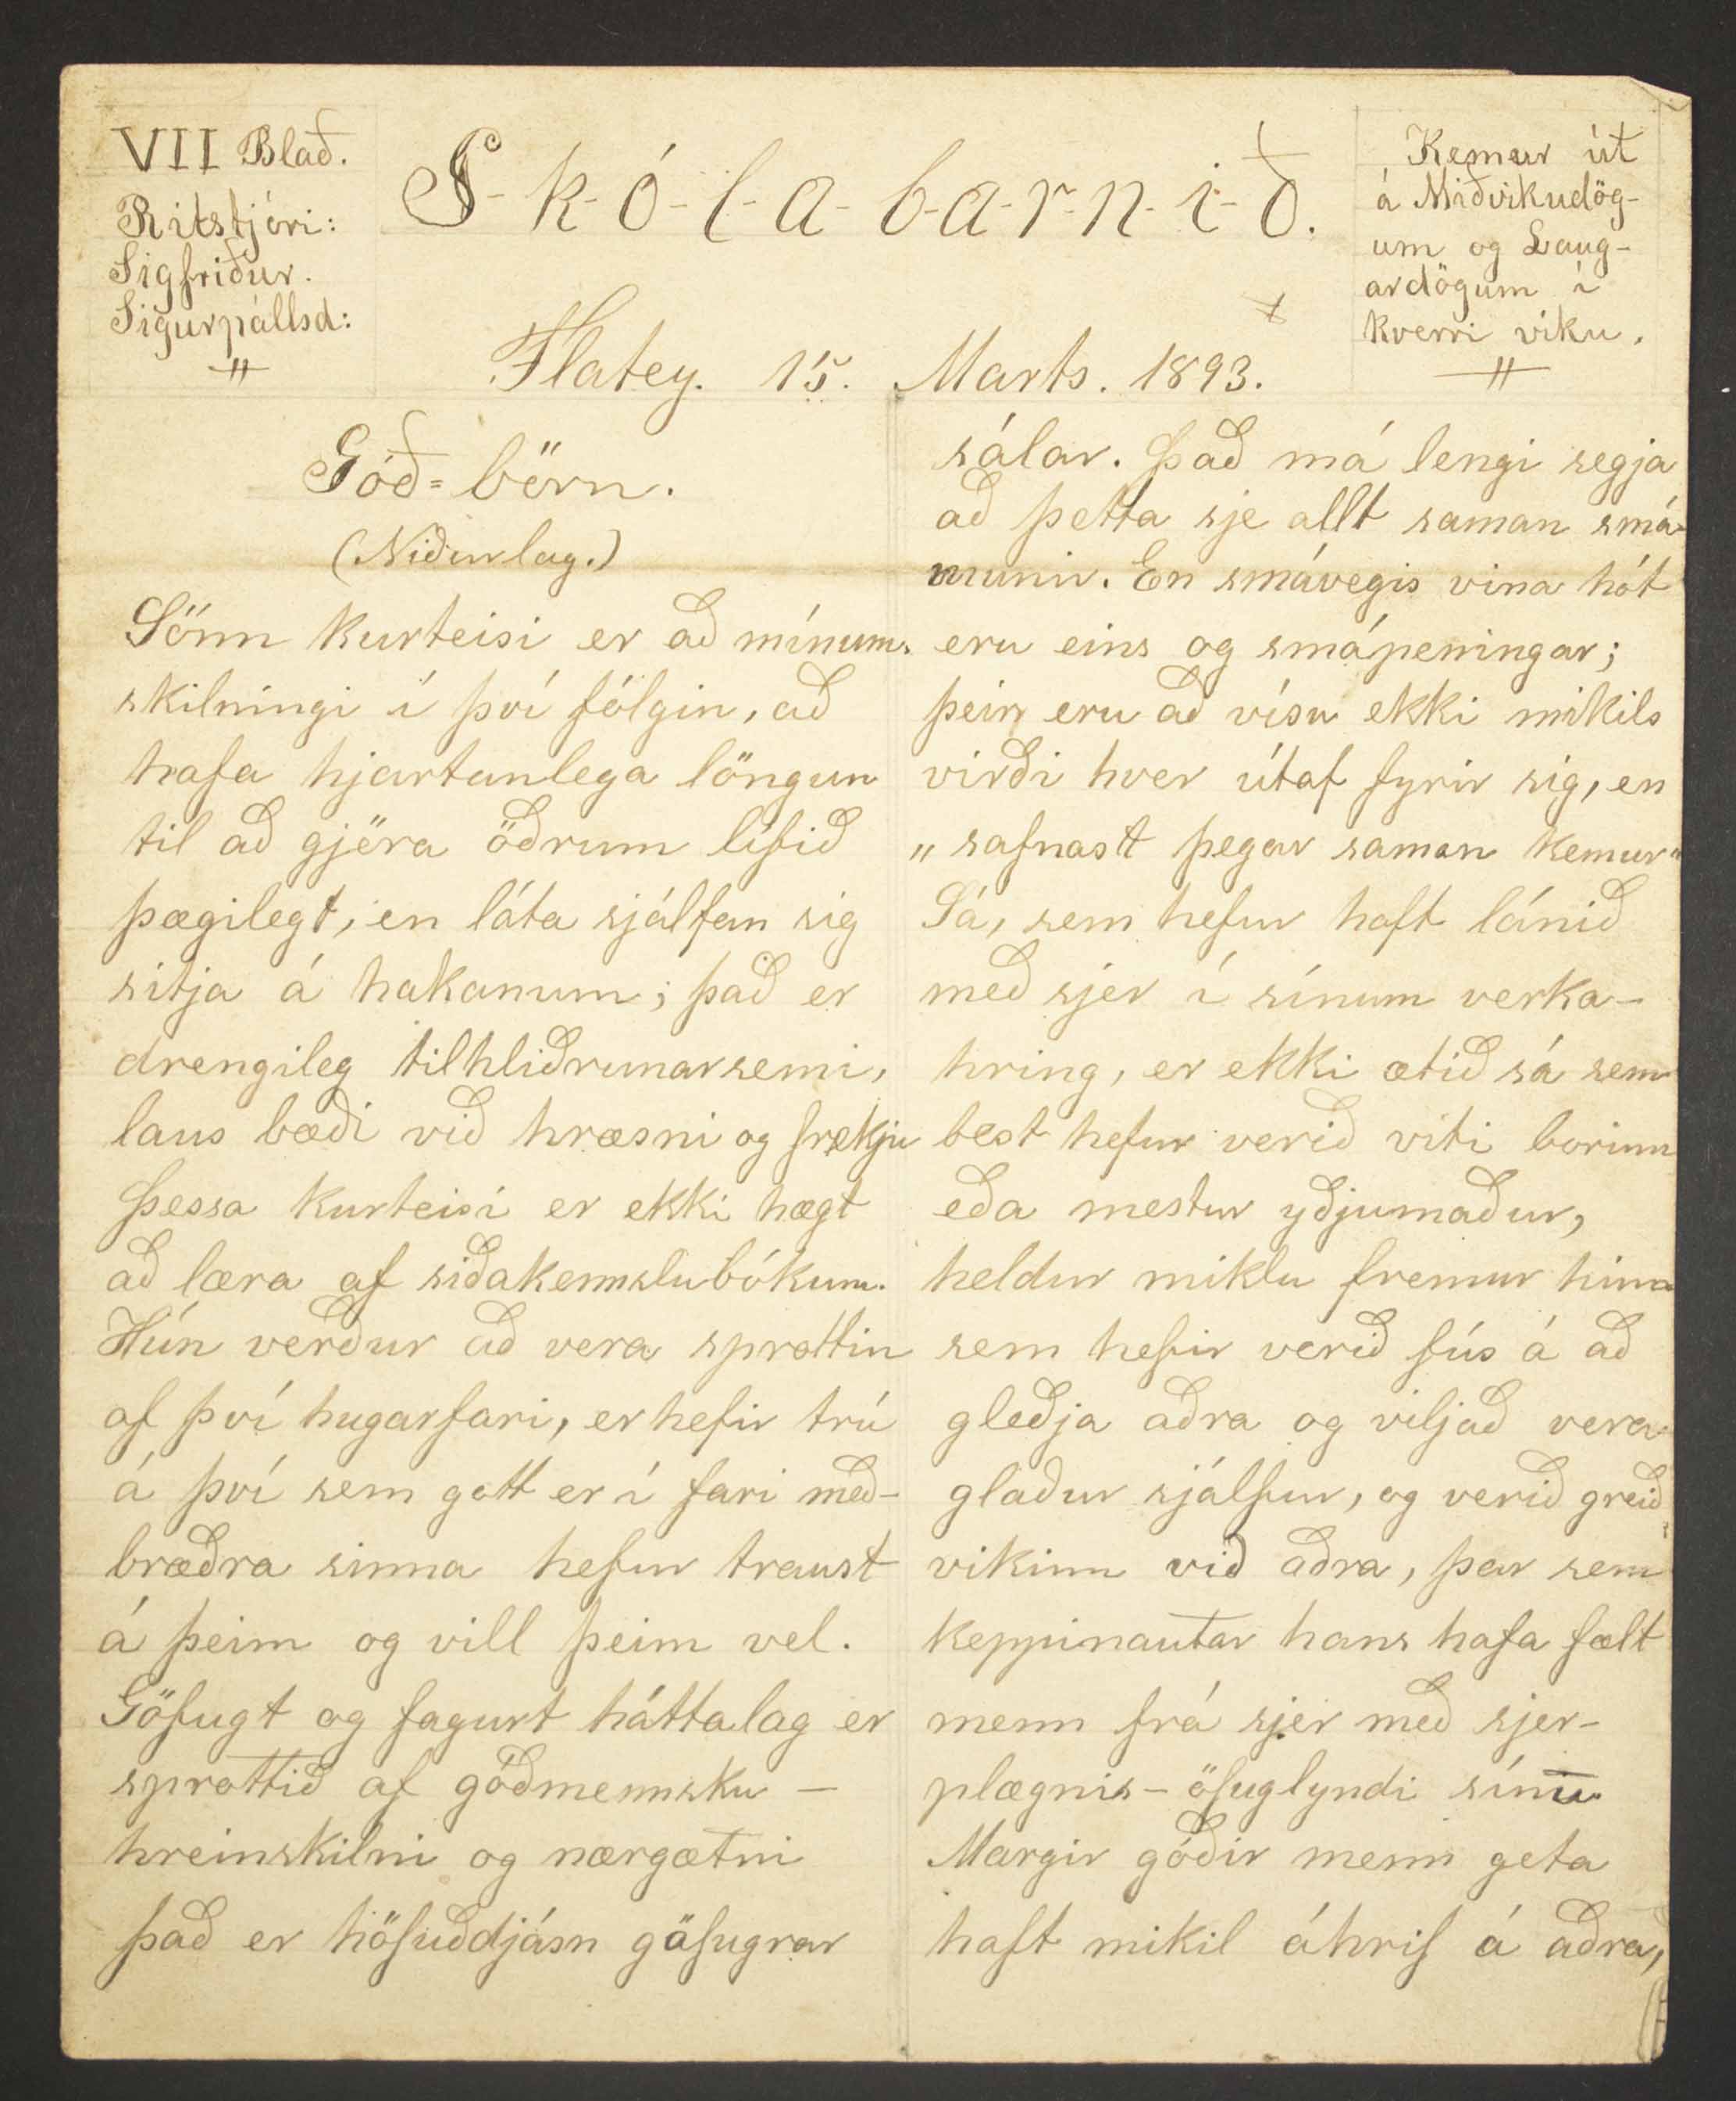 VII Blað.
Ritstjóri:
Sigfriður.
Sigurpállsd:
S-k-ó-l-a-b-a-r-n-i-ð.
Flatey. 15. Marts. 1893.
Kemur út
á Miðvikudög-
um og Laug-
ardögum í
hverri viku.
Góð=börn.
(Niðurlag.)
Sönn kurteisi er að mínum
skilningi í því fólgin, að
hafa hjartanlega löngun
til að gjöra öðrum lífið
þægilegt, en láta sjálfan sig
sitja á hakanum; það er
drengileg tilhliðrunarsemi,
laus bæði við hræsni og frekju
Þessa kurteisi er ekki hægt
að læra af siðakennslubókum.
Hún verður að vera sprottin
af því hugarfari, er hefir trú
á því sem gott er í fari með-
bræðra sinna hefur traust
á þeim og vill þeim vel.
Göfugt og fagurt háttalag er
sprottið af góðmennsku –
hreinskilni og nærgætni
það er höfuðdjásn göfugrar
sálar. Það má lengi segja
að þetta sje allt saman smá-
munir. En smávegis vina hót
eru eins og smápeningar;
þeir eru að vísu ekki mikils
virði hver útaf fyrir sig, en
„safnast þegar saman kemur"
Sá, sem hefur haft lánið
með sjer í sínum verka-
hring, er ekki ætið sá sem
best hefur verið viti borinn
eða mestur yðjumaður,
heldur miklu fremur hinn
sem hefir verið fús á að
gleðja aðra og viljað vera
glaður sjálfur, og verið greið
vikinn við aðra, þar sem
keppinautar hans hafa fælt
menn frá sjer með sjer-
plægnis- öfuglyndi sínu
Margir góðir menn geta
haft mikil áhrif á aðra,